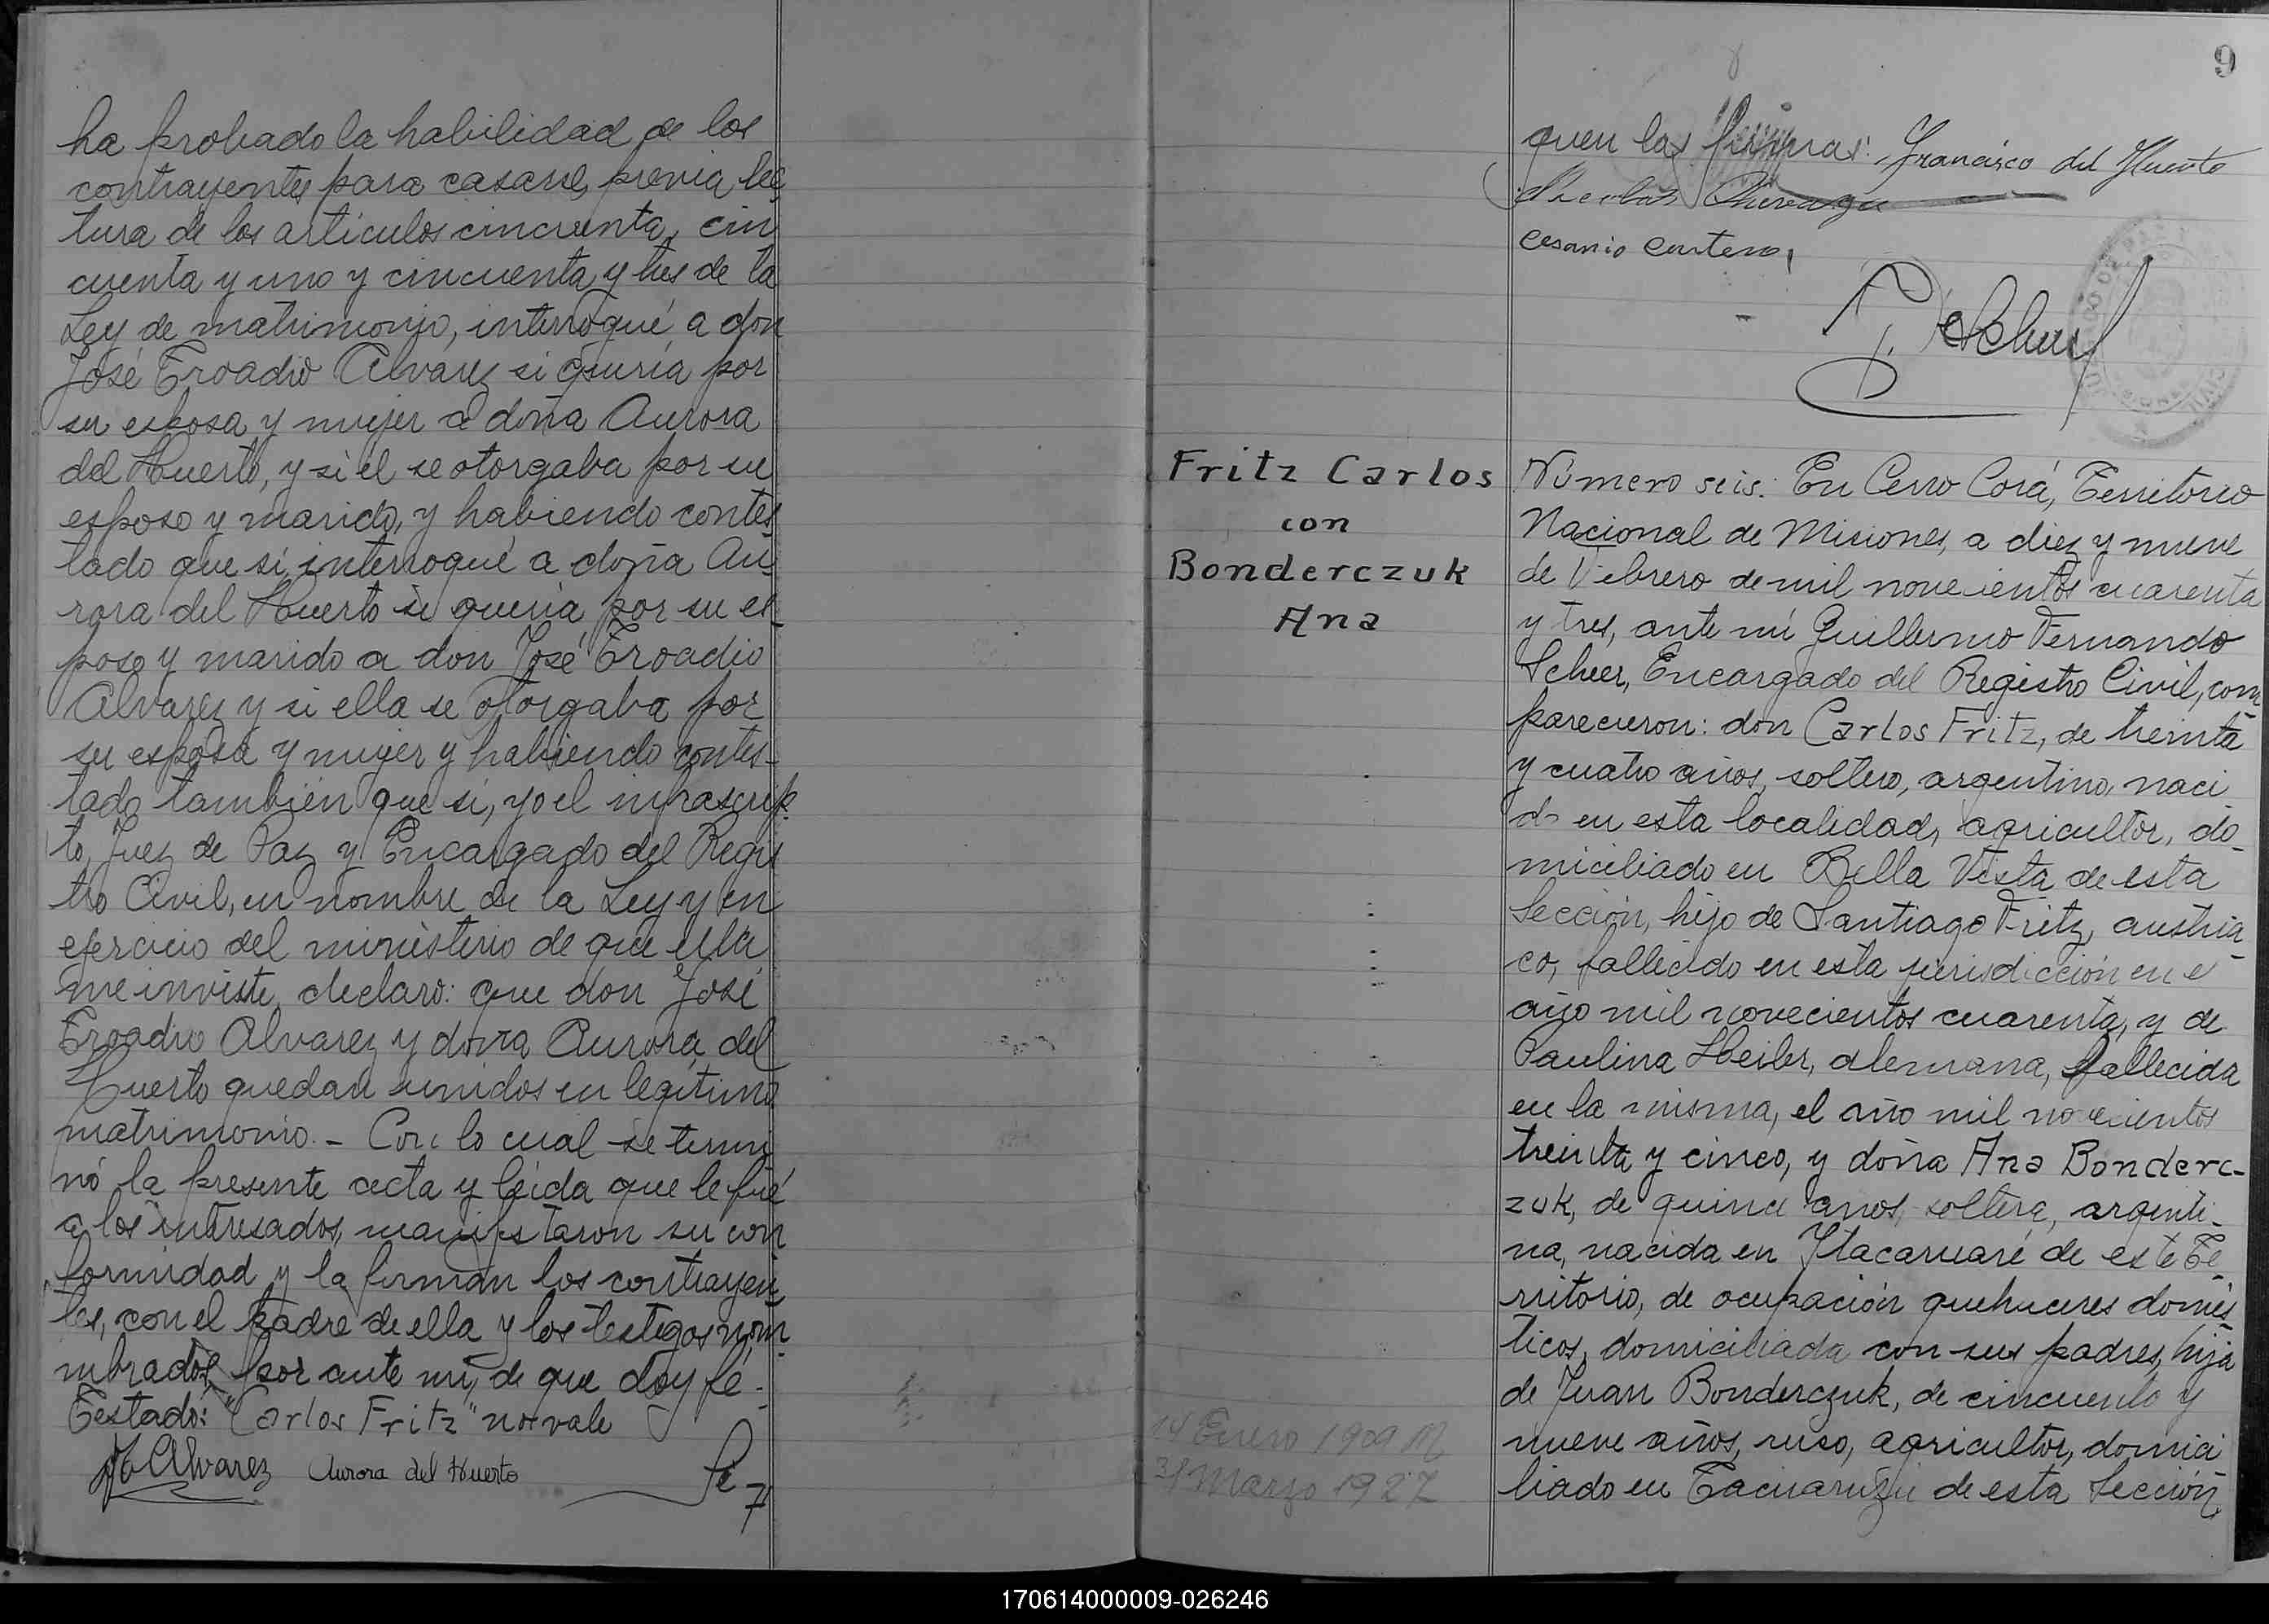 ha probado la habilidad de los
contrayentes para casarse, previa lec
tura de los artículos cincuenta, cin
cuenta y uno y cincuenta y tres de la
Ley de matrimonio, interrogué a don
José Troadio Alvarez si quería por
su esposa y mujer a doña Aurora
del Huerto, y si él se otorgaba por su
esposo y marido, y habiendo contes
tado que sí, interrogué a doña Au-
rora del Huerto si quería por su es-
poso y marido a don José Troadio
Alvarez y si ella se otorgaba por
su esposa y mujer y habiendo contes-
tado también que sí, yo el infrascrip-
to, Juez de Paz y Encargado del Regis
tro Civil, en nombre de la Ley y en
ejercicio del ministerio de que ella
me inviste, declaro: que don José
Troadio Alvarez y doña Aurora del
Huerto quedan unidos en legítimo
matrimonio. - Con lo cual se termi
nó la presente acta y leída que le fué
a los interesados, manifestaron su con
formidad y la firman los contrayen
tes, con el padre de ella y los testigos nom-
mbrados por ante mí, de que doy fé.
Testado: "Carlos Fritz" no vale
Alvarez Aurora del Huerto
9
quen las firmas: Francisco del Huerto
Cesario
Scheer
Fritz Carlos
con
Bonderczuk
Ana
Número seis: En Cerro Corá, Territorio
Nacional de Misiones, a diez y nueve
de Febrero de mil novecientos cuarenta
y tres, ante mí Guillermo Fernando
Scheer, Encargado del Registro Civil, com
parecieron: don Carlos Fritz, de treinta
y cuatro años, soltero, argentino, naci
do en esta localidad, agricultor, do-
miciliado en Bella Vista de esta
Sección, hijo de Santiago Fritz, austria-
co, fallecido en esta jurisdicción en el
año mil novecientos cuarenta, y de
Paulina Heiler, alemana, fallecida
en la misma, el año mil novecientos
treinta y cinco, y doña Ana Bonderc-
zuk, de quince años, soltera, argenti-
na, nacida en Itacaruaré de este Te
rritorio, de ocupación quehaceres domés
ticos, domiciliada con sus padres, hija
de Juan Bonderczuk, de cincuenta y
nueve años, ruso, agricultor, domici
liado en Tacuaruzú de esta Sección,
14 Enero 1909 M
31 Marzo 1927
170614000009-026246